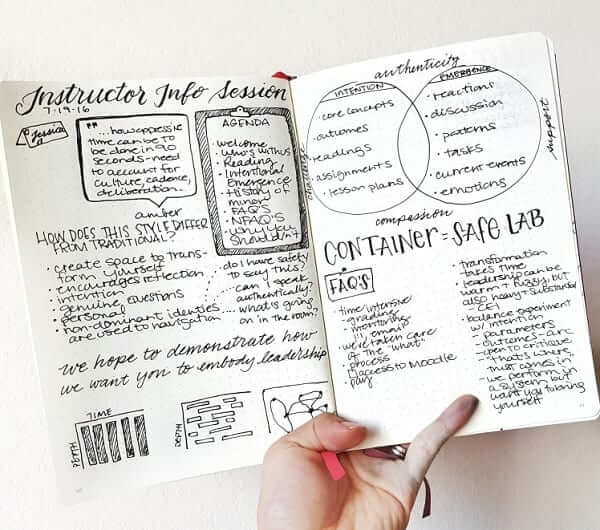 Instructor Info Session
7·19·16
Jessica
"...how oppressive
time can be to
be done in 90
seconds-need
to account for
culture, cadence,
deliberation."
amber
AGENDA
welcome
who's with us
Reading
Intentional
Emergence
History of
minor
FAQ's
NFAQ's
why you
shouldn't
HOW DOES THIS STYLE DIFFER
FROM TRADITIONAL?
create space to trans-
form yourself
encourages reflection
intention
genuine, questions
personal
non-dominant identies
are used to navigation
do I have safety
to say this?
can I speak
authentically?
what is going
on in the room?
we hope to demonstrate how
we want you to embody leadership
TIME
DEPTH
DEPTH
authenticity
INTENTION
core concepts
outcomes
readings
assignments
lesson plans
EMERGENCE
reactions
discussion
patterns
tasks
current events
emotions
support
compassion
CONTAINER = SAFE LAB
FAQ'S
time intensive
grading
mentoring
!!! email
we're taken care
of the "what"
process
access to Moodle
pay
transformation
takes time
leadership can be
warm + fuzzy, but
also heavy + substance
CEI
balance experiment
w/ intention
parameters
outcomes are
open to critique
that's where
trust comes in
we perform in
a system, but
want you to bring
yourself